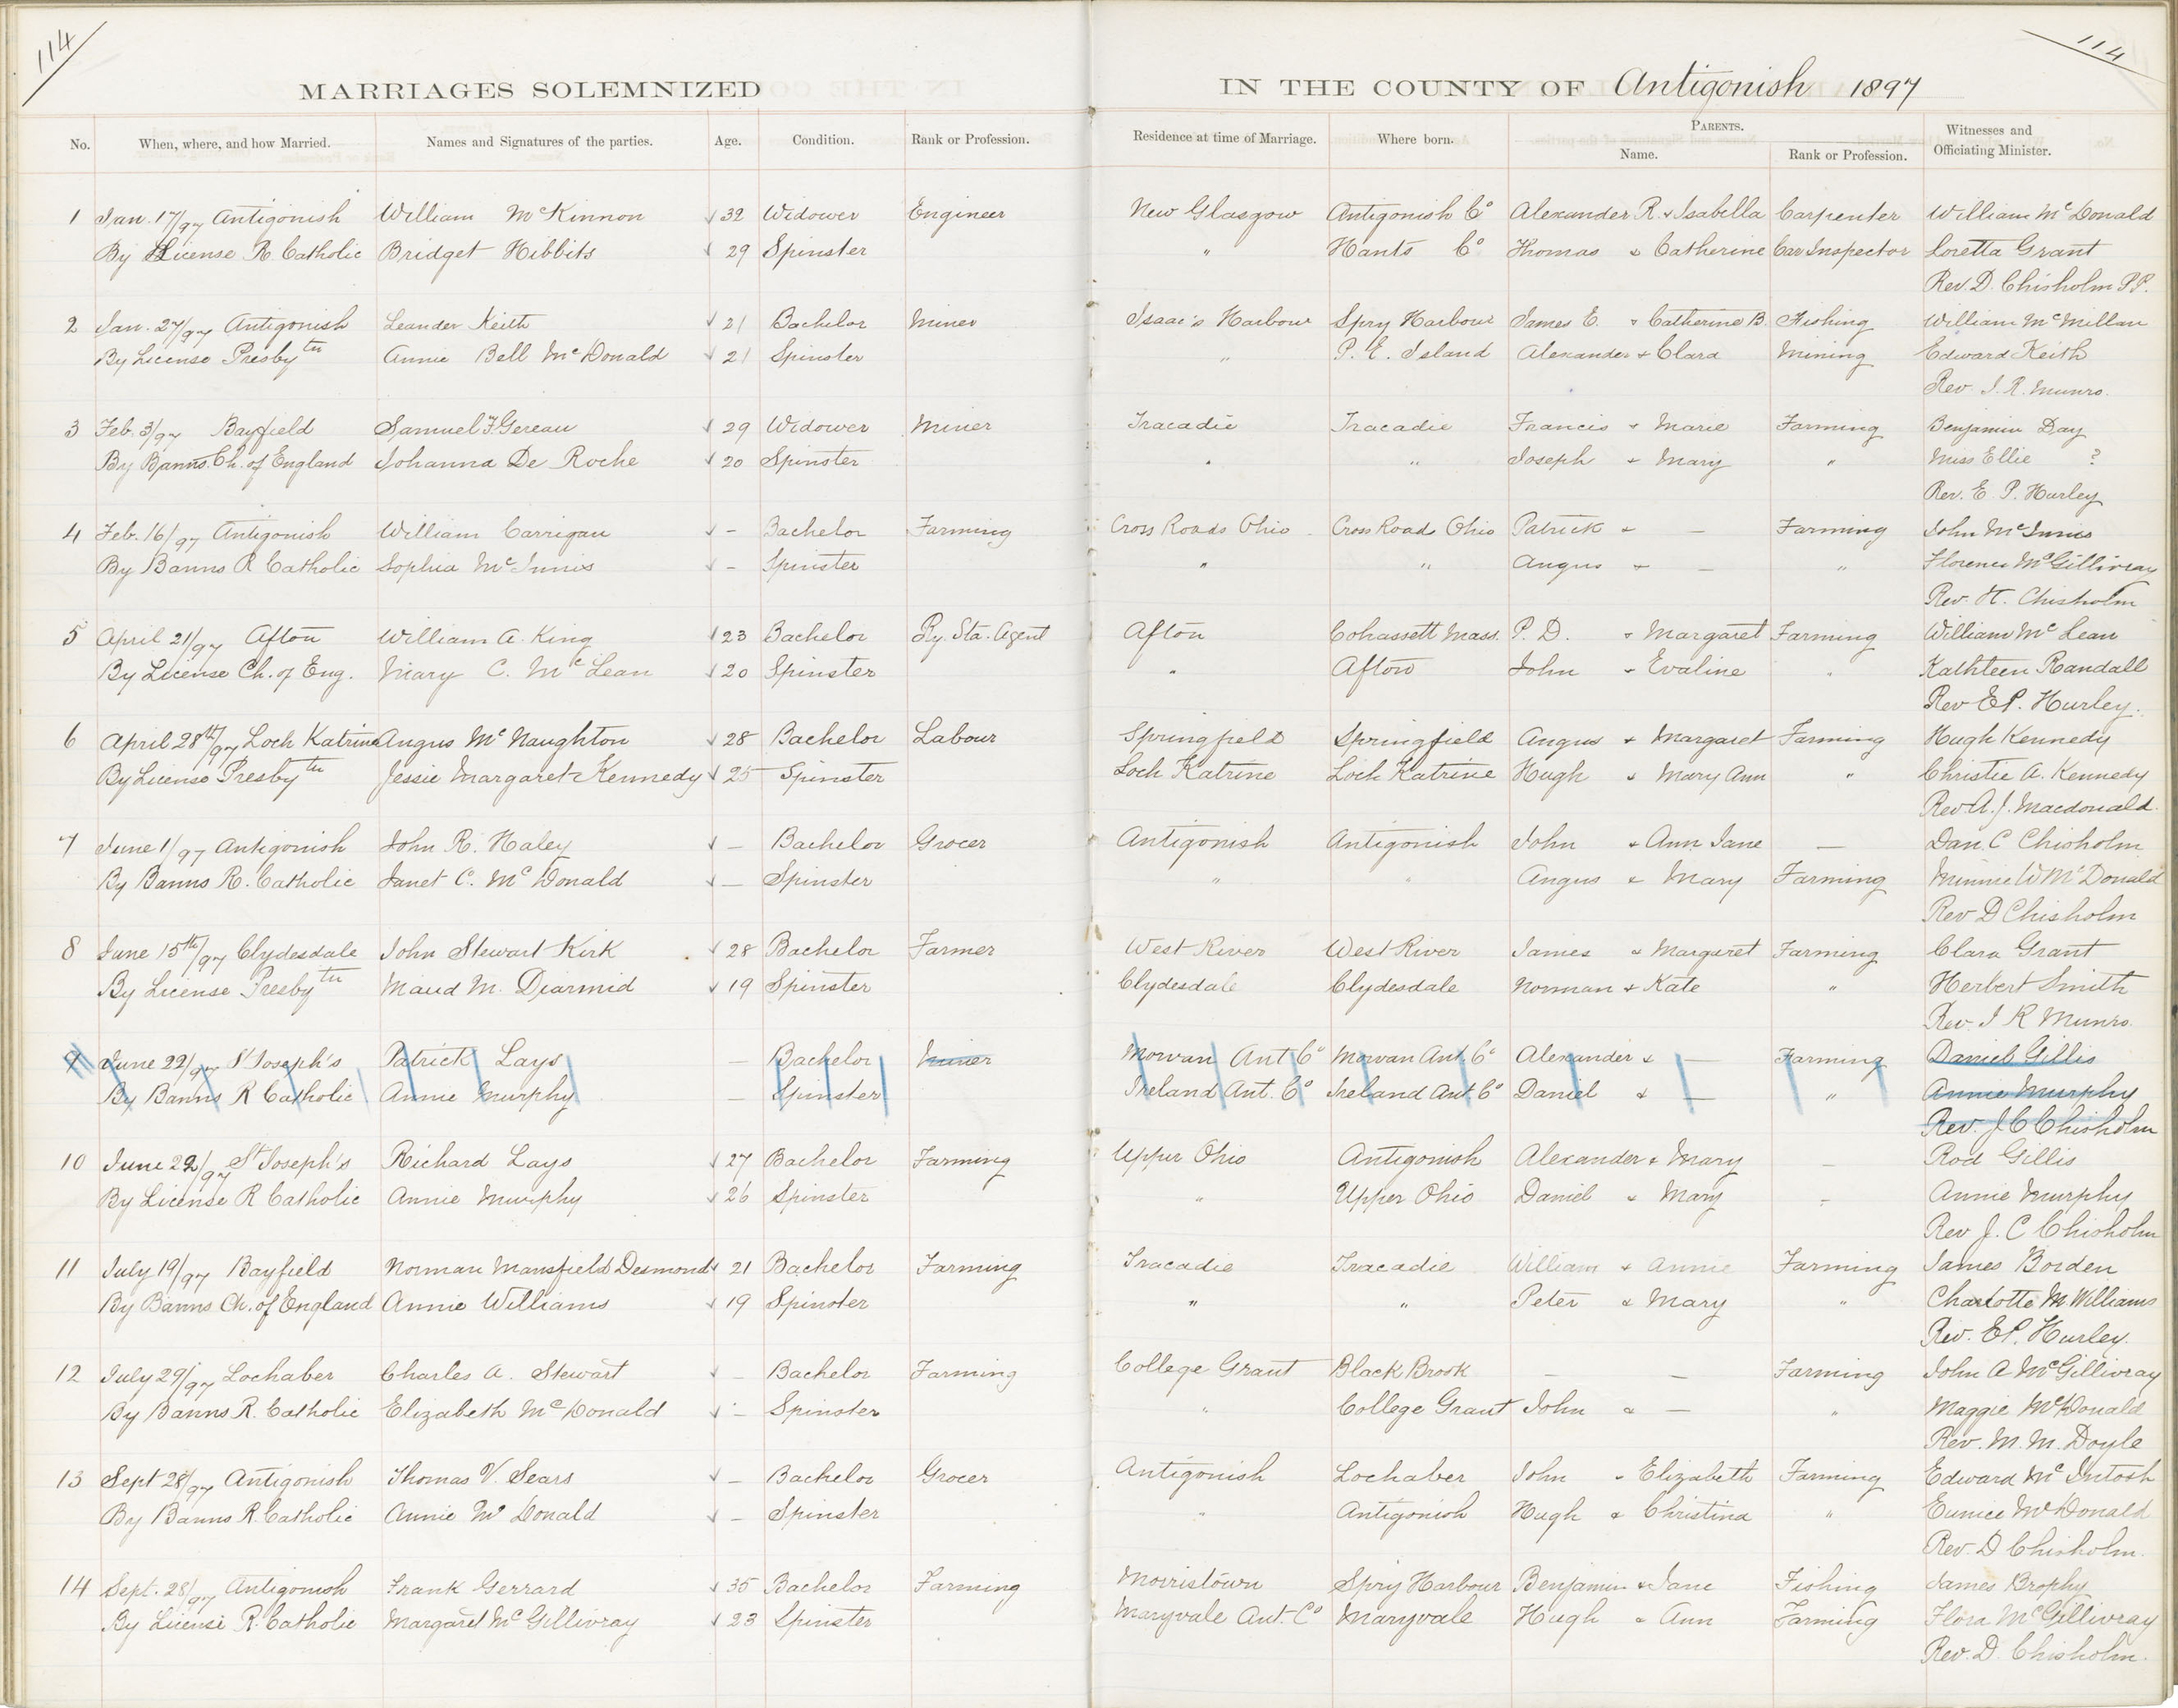 114 114
MARRIAGES SOLEMNIZED IN THE COUNTY OF Antigonish 1897
No. When, where, and how Married. Names and Signatures of the parties. Age. Condition. Rank or Profession. Residence at time of Marriage. Where born. PARENTS. Name. Rank or Profession. Witnesses and Officiating Minister.
1 Jan. 17/97 Antigonish William McKinnon √ 32 Widower Engineer New Glasgow Antigonish Co Alexander R. & Isabella Carpenter William McDonald
By License R. Catholic Bridget Hibbits √ 29 Spinster " Hants Co Thomas & Catherine Car Inspector Loretta Grant
Rev. D. Chisholm P.P.
2 Jan. 27/97 Antigonish Leander Keith √ 21 Bachelor Miner Isaac's Harbour Spry Harbour James E. & Catherine B. Fishing William McMillan
By License Presbytn Annie Bell McDonald √ 21 Spinster " P. E. Island Alexander & Clara Mining Edward Keith
Rev. J. R. Munro.
3 Feb. 3/97 Bayfield Samuel F. Gereau √ 29 Widower Miner Tracadie Tracadie Francis & Marie Farming Benjamin Day
By Banns. Ch. of England Johanna De Roche √ 20 Spinster " " Joseph & Mary " Miss Ellie ?
Rev. E. P. Hurley
4 Feb. 16/97 Antigonish William Carrigan √ - Bachelor Farming Cross Roads Ohio Cross Roads Ohio Patrick & — Farming John McInnis
By Banns R. Catholic Sophia McInnis √ - Spinster " " Angus & — " Florence McGillivray
Rev. H. Chisholm
5 April 21/97 Afton William A. King √ 23 Bachelor Ry. Sta. Agent Afton Cohassett Mass. P. D. & Margaret Farming William McLean
By License Ch. of Eng. Mary C. McLean √ 20 Spinster " Afton John & Evaline " Kathleen Randall
Rev E.P. Hurley.
6 April 28th/97 Loch Katrine Angus McNaughton √ 28 Bachelor Labour Springfield Springfield Angus & Margaret Farming Hugh Kennedy
By License Presbytn Jessie Margaret Kennedy √ 25 Spinster Loch Katrine Loch Katrine Hugh & Mary Ann " Christie A. Kennedy
Rev. A. J. Macdonald.
7 June 1/97 Antigonish John R. Haley √ — Bachelor Grocer Antigonish Antigonish John & Ann Jane — Dan. C Chisholm
By Banns R. Catholic Janet C. McDonald √ — Spinster " " Angus & Mary Farming Minnie W McDonald
Rev D Chisholm
8 June 15th/97 Clydesdale John Stewart Kirk √ 28 Bachelor Farmer West River West River James & Margaret Farming Clara Grant
By License Presbytn Maud M. Diarmid √ 19 Spinster Clydesdale Clydesdale Norman & Kate " Herbert Smith
Rev. J R Munro.
9 June 22/97 St Joseph's Patrick Lays — Bachelor Miner Morvan Ant Co Morvan Ant. Co Alexander & — Farming Daniel Gillis
By Banns R Catholic Annie Murphy — Spinster Ireland Ant. Co Ireland Ant. Co Daniel & — " Annie Murphy
Rev. J C Chisholm
10 June 22/97 St Joseph's Richard Lays √ 27 Bachelor Farming Upper Ohio Antigonish Alexander & Mary — Rod Gillis
By License R Catholic Annie Murphy √ 26 Spinster " Upper Ohio Daniel & Mary — Annie Murphy
Rev J. C Chisholm
11 July 19/97 Bayfield Norman Mansfield Desmond √ 21 Bachelor Farming Tracadie Tracadie William & Annie Farming James Borden
By Banns Ch. of England Annie Williams √ 19 Spinster " " Peter & Mary " Charlotte M Williams
Rev. E.P. Hurley.
12 July 29/97 Lochaber Charles A. Stewart √ — Bachelor Farming College Grant Black Brook — — Farming John A McGillivray
By Banns R. Catholic Elizabeth McDonald √ — Spinster " College Grant John & — " Maggie McDonald
Rev. M. M. Doyle
13 Sept 28/97 Antigonish Thomas V. Sears √ — Bachelor Grocer Antigonish Lochaber John & Elizabeth Farming Edward McIntosh
By Banns R. Catholic Annie McDonald √ — Spinster " Antigonish Hugh & Christina " Eunice McDonald
Rev. D Chisholm.
14 Sept. 28/97 Antigonish Frank Gerrard √ 35 Bachelor Farming Morristown Spry Harbour Benjamin & Jane Fishing James Brophy
By License R. Catholic Margaret McGillivray √ 23 Spinster Maryvale Ant. Co Maryvale Hugh & Ann Farming Flora McGillivray
Rev. D. Chisholm.